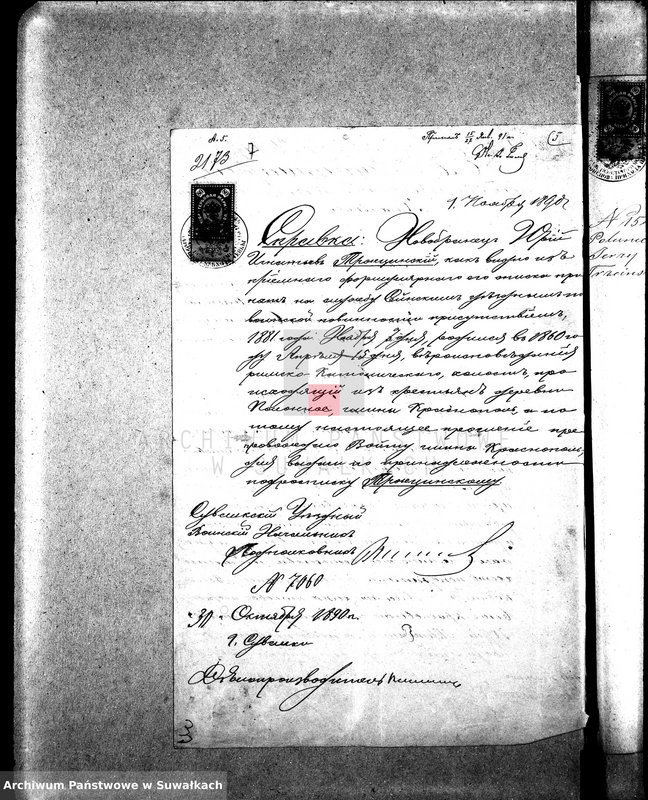 А. 5.
2173
7
5
1. Ноября 1890 г
Справка: Новобранец Юрий
Игнатьев Троцинский, как видно изъ
приёмнаго формулярнаго его списка при-
нятъ на службу Сейнскимъ уѣзднымъ по
воинской повинности присутствіемъ,
1881 года Ноября 2 дня, родился въ 1860 го-
ду Апрѣля дня, вѣроисповѣданія
римско Католическаго, холостъ, про-
исходящій изъ крестьянъ деревни
гмины Краснополь, а по-
тому настоящее прошеніе пре-
провождено Войту гмины Краснополь,
для выдачи по принадлежности
подъ росписку Троцинскому.
Сувалкскій Уѣздный
Воинскій Начальникъ
Подполковникъ
№ 7060
"30" Октября 1890 г.
г. Сувалки
Дѣлопроизводитель
№ 15
Jerzy
ARCHIWUM PAŃSTWOWE
W SUWAŁKACH
Archiwum Państwowe w Suwałkach